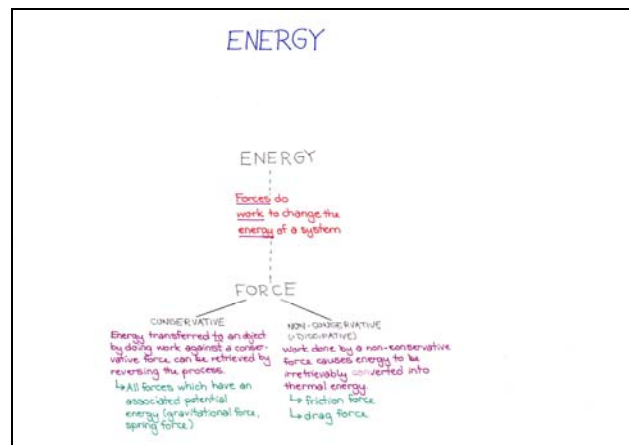 ENERGY
ENERGY
Forces do
work to change the
energy of a system
FORCE
CONSERVATIVE
Energy transferred to an object
by doing work against a conser-
vative force can be retrieved by
reversing the process.
↳ All forces which have an
associated potential
energy (gravitational force,
spring force)
NON-CONSERVATIVE
(DISSIPATIVE)
Work done by a non-conservative
force causes energy to be
irretrievably converted into
thermal energy.
↳ friction force
↳ drag force